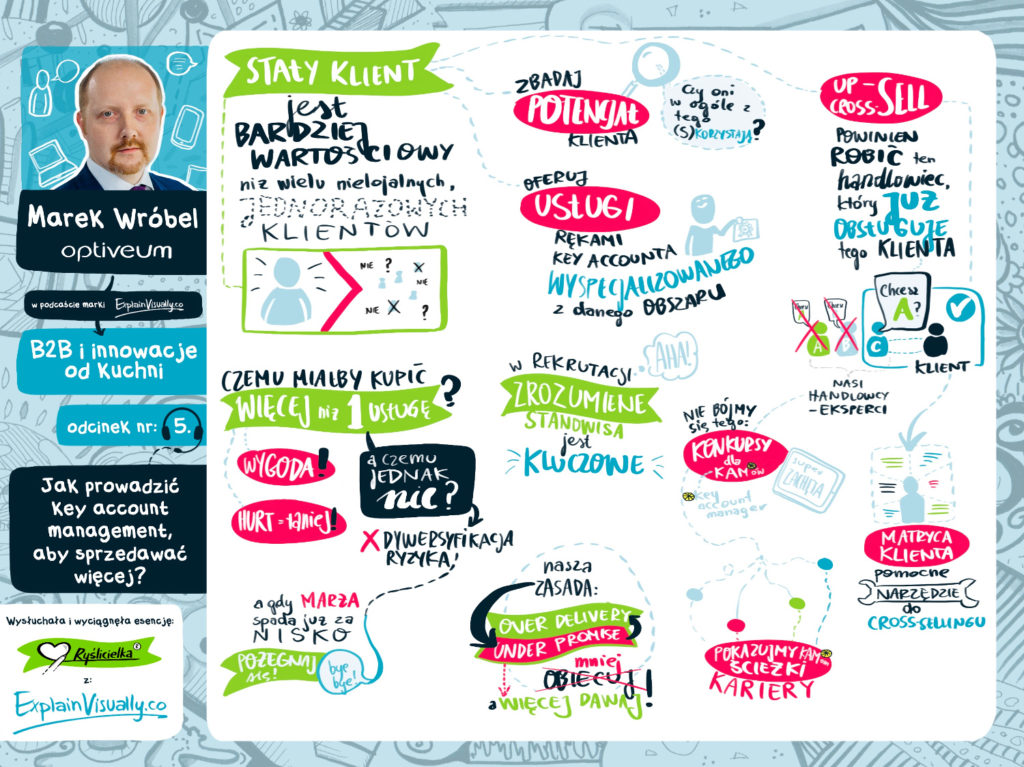 Marek Wróbel
optiveum
w podcaście marki ExplainVisually.co
B2B i innowacje
od Kuchni
odcinek nr: 5.
Jak prowadzić
Key account
management,
aby sprzedawać
więcej?
Wysłuchała i wyciągnęła esencję:
Ryślicielka
z:
ExplainVisually.co
STAŁY KLIENT
jest
BARDZIEJ
WARTOŚCIOWY
niż wielu nielojalnych,
JEDNORAZOWYCH
KLIENTÓW
NIE ? X
NIE
NIE X ?
ZBADAJ
POTENCJAŁ
KLIENTA
Czy oni
w ogóle z
tego
(S)KORZYSTAJĄ?
OFERUJ
USŁUGI
RĘKAMI
KEY ACCOUNTA
WYSPECJALIZOWANEGO
z danego OBSZARU
UP-
CROSS-SELL
POWINIEN
ROBIĆ ten
handlowiec,
który JUŻ
OBSŁUGUJE
tego KLIENTA
Chcesz
A?
A
B
C
KLIENT
NASI
HANDLOWCY
-EKSPERCI
CZEMU MIAŁBY KUPIĆ
WIĘCEJ niż 1 USŁUGĘ?
WYGODA!
HURT = taniej!
a czemu
JEDNAK
nie?
X DYWERSYFIKACJA
RYZYKA!
a gdy MARŻA
spada już za
NISKO
POŻEGNAJ
się!
bye
bye!
W REKRUTACJI
AHA!
ZROZUMIENIE
STANOWISKA
jest
KLUCZOWE
NIE BÓJMY
się tego:
KONKURSY
dla
KAMów
super
ZACHĘTA
key
account
manager
MATRYCA
KLIENTA
pomocne
NARZĘDZIE
do
CROSS-SELLINGU
nasza
ZASADA:
OVER DELIVERY
UNDER PROMISE
mniej
OBIECUJ!
a WIĘCEJ DAWAJ
POKAZUJMY KAMom
ŚCIEŻKI
KARIERY